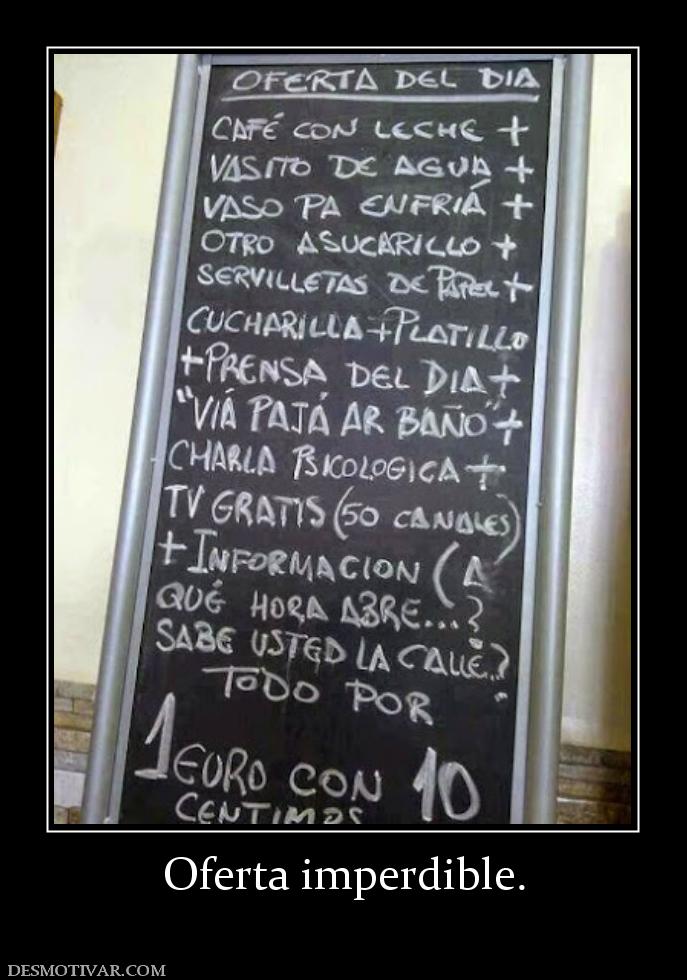 OFERTA DEL DIA
CAFÉ CON LECHE +
VASITO DE AGUA +
VASO PA ENFRIÁ +
OTRO ASUCARILLO +
SERVILLETAS DE PAPEL +
CUCHARILLA + PLATILLO
+ PRENSA DEL DIA +
"VIÁ PAJÁ AR BAÑO" +
CHARLA PSICOLOGICA +
TV GRATIS (50 CANALES)
+ INFORMACION (A
QUÉ HORA ABRE...?
SABE USTED LA CALLE..?
TODO POR
1 EURO CON 10
CENTIMOS
Oferta imperdible.
DESMOTIVAR.COM